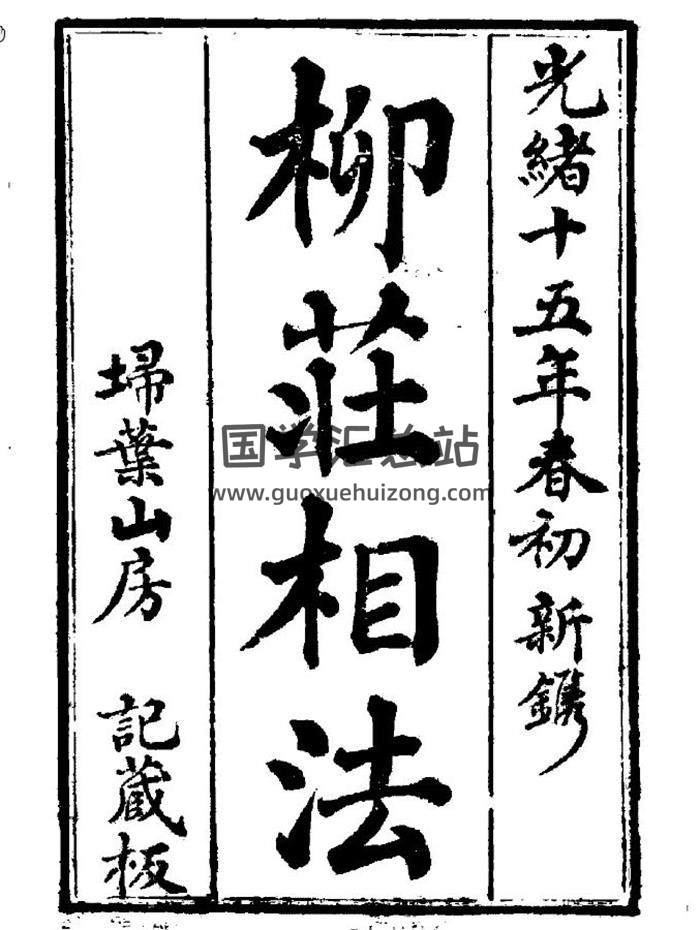 光緒十五年春初新鐫
柳莊相法
埽葉山房 記蔵板
国学汇总站
www.guoxuehuizong.com